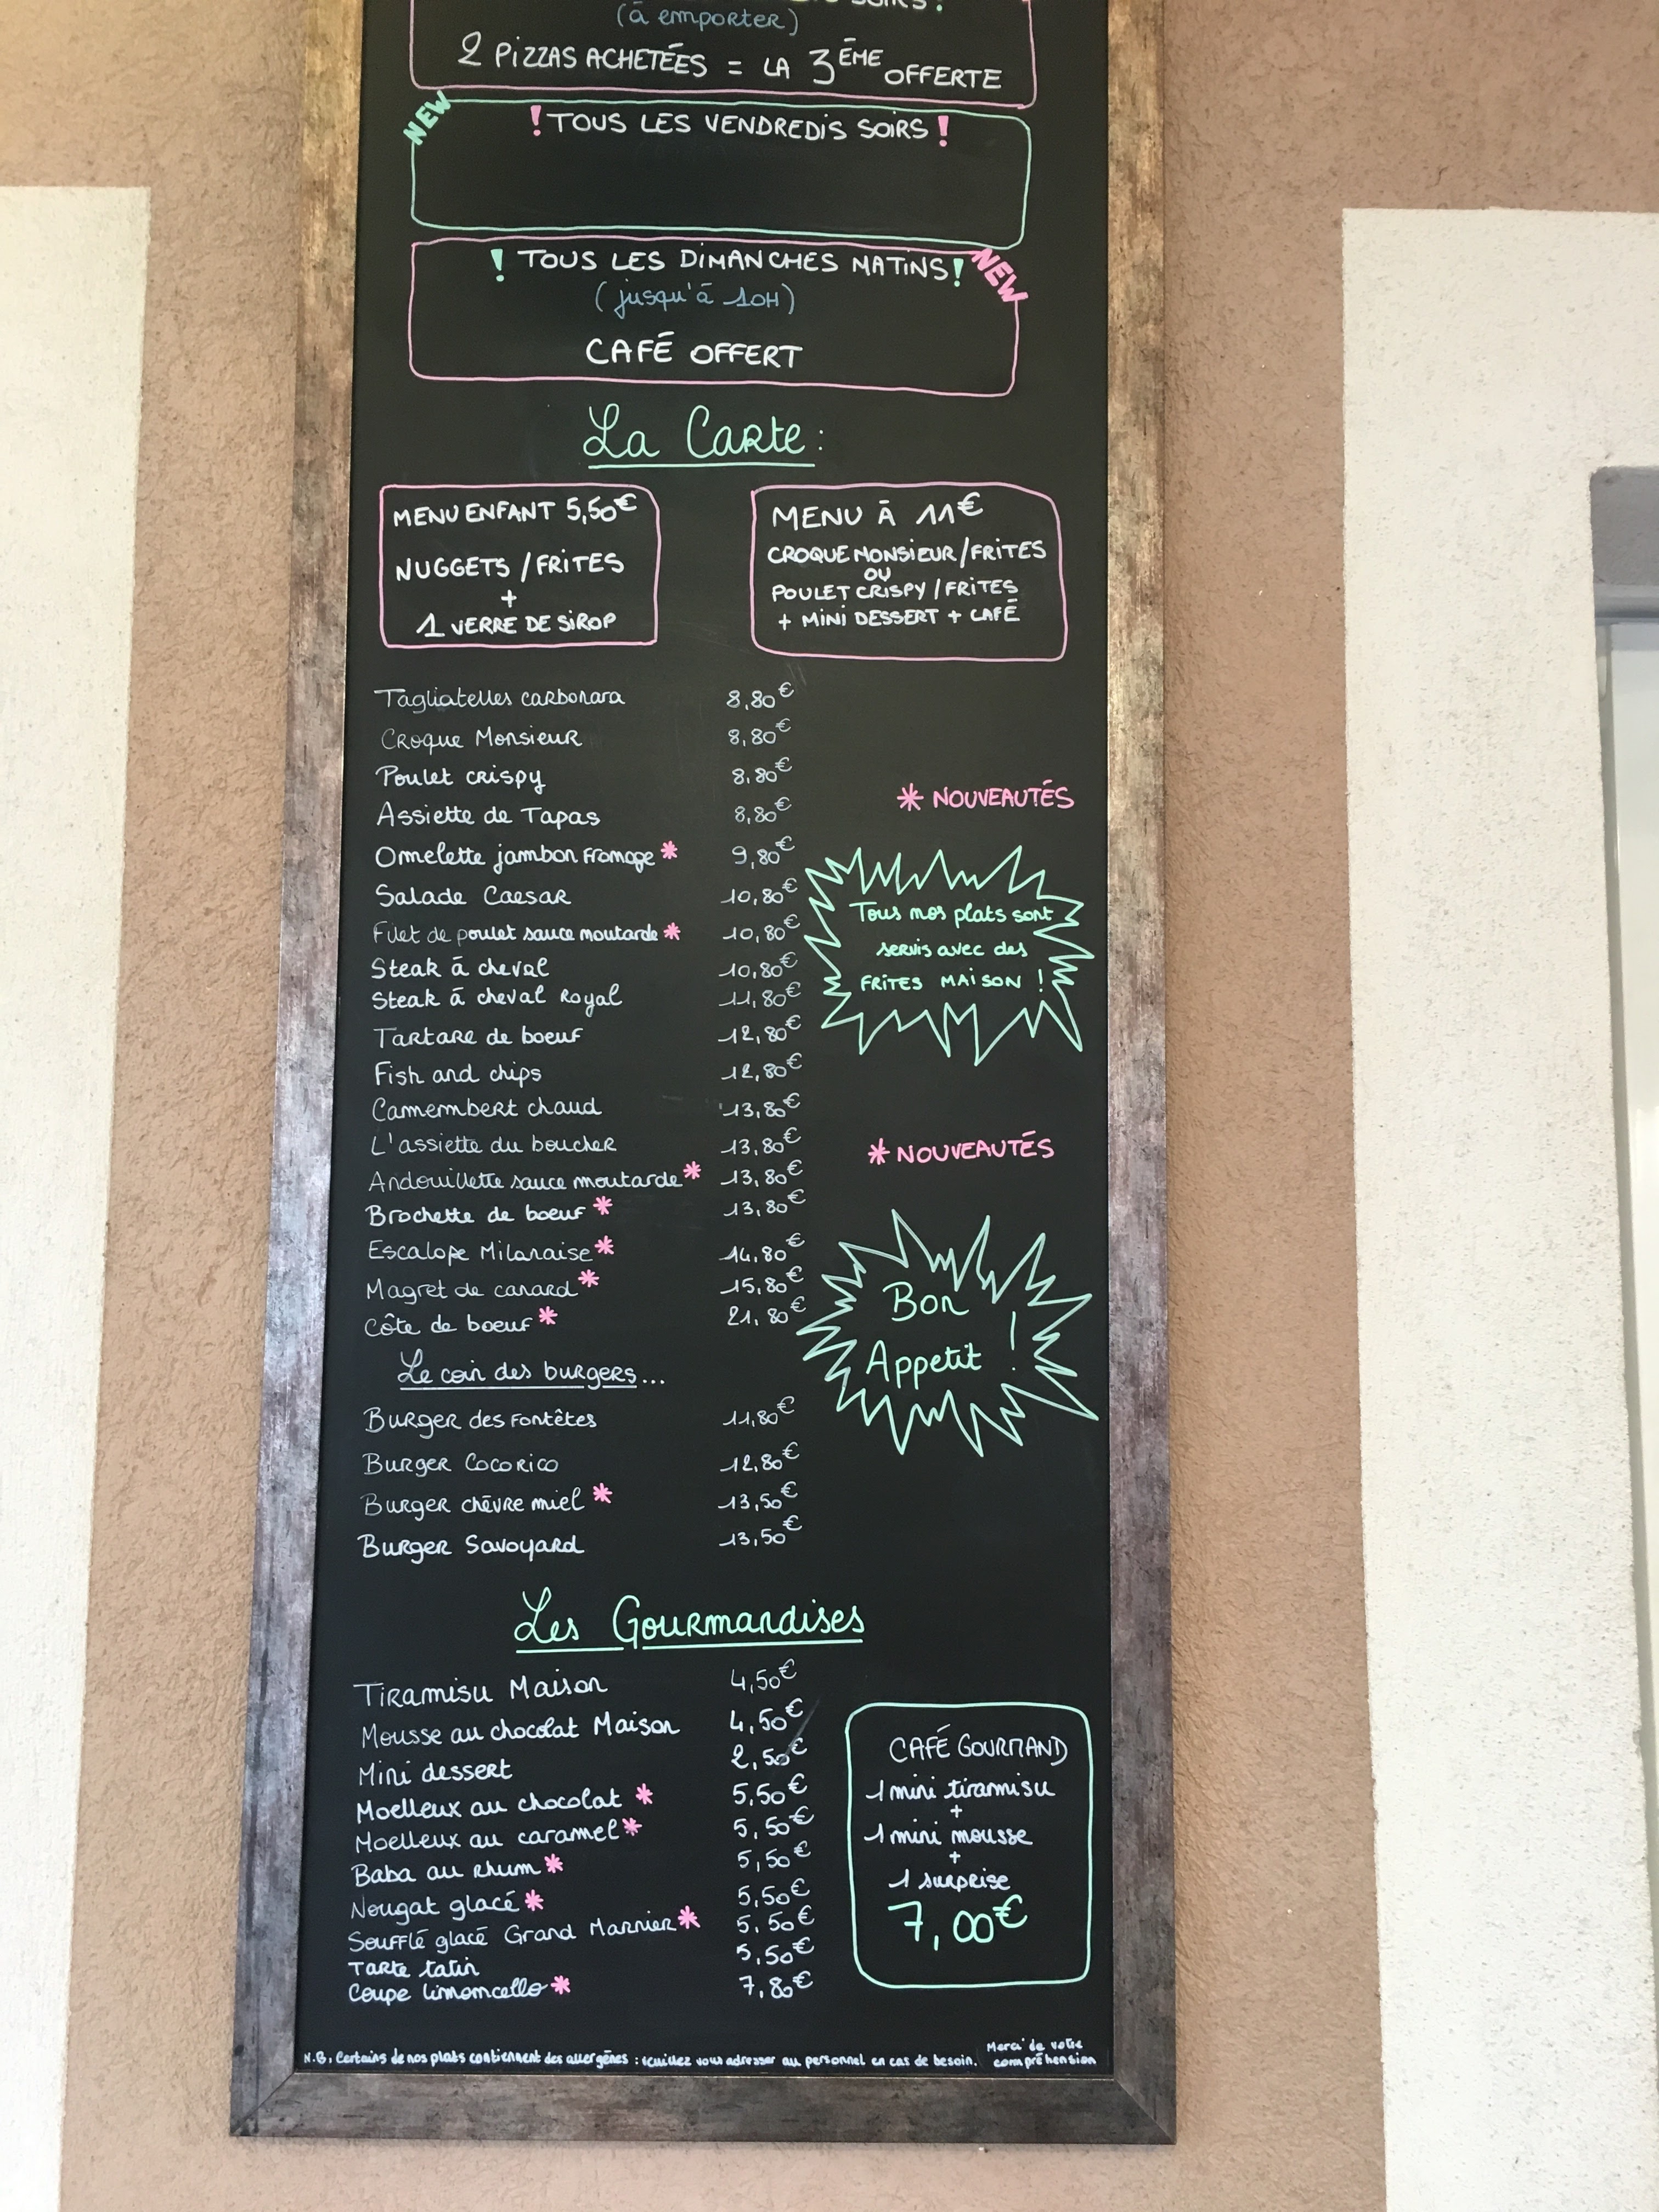 (à emporter)
2 PIZZAS ACHETÉES = LA 3ÈME OFFERTE
NEW
! TOUS LES VENDREDIS SOIRS !
! TOUS LES DIMANCHES MATINS !
NEW
(jusqu'à 10H)
CAFÉ OFFERT
La Carte :
MENU ENFANT 5,50€
NUGGETS / FRITES
+
1 VERRE DE SIROP
MENU À 11€
CROQUE MONSIEUR / FRITES
OU
POULET CRISPY / FRITES
+ MINI DESSERT + CAFÉ
Tagliatelles carbonara 8,80€
Croque Monsieur 8,80€
Poulet crispy 8,80€
Assiette de Tapas 8,80€
Omelette jambon fromage * 9,80€
Salade Caesar 10,80€
Filet de poulet sauce moutarde * 10,80€
Steak à cheval 10,80€
Steak à cheval Royal 11,80€
Tartare de boeuf 12,80€
Fish and chips 12,80€
Camembert chaud 13,80€
L'assiette du boucher 13,80€
Andouillette sauce moutarde * 13,80€
Brochette de boeuf * 13,80€
Escalope Milanaise * 14,80€
Magret de canard * 15,80€
Côte de boeuf * 21,80€
* NOUVEAUTÉS
Tous nos plats sont
servis avec des
FRITES MAISON !
* NOUVEAUTÉS
Bon
Appetit !
Le coin des burgers...
Burger des Fontêtes 11,80€
Burger Cocorico 12,80€
Burger chèvre miel * 13,50€
Burger Savoyard 13,50€
Les Gourmandises
Tiramisu Maison 4,50€
Mousse au chocolat Maison 4,50€
Mini dessert 2,50€
Moelleux au chocolat * 5,50€
Moelleux au caramel * 5,50€
Baba au rhum * 5,50€
Nougat glacé * 5,50€
Soufflé glacé Grand Marnier * 5,50€
Tarte tatin 5,50€
Coupe limoncello * 7,80€
CAFÉ GOURMAND
1 mini tiramisu
+
1 mini mousse
+
1 surprise
7,00€
N.B: Certains de nos plats contiennent des allergènes : veuillez vous adresser au personnel en cas de besoin.
Merci de votre
compréhension